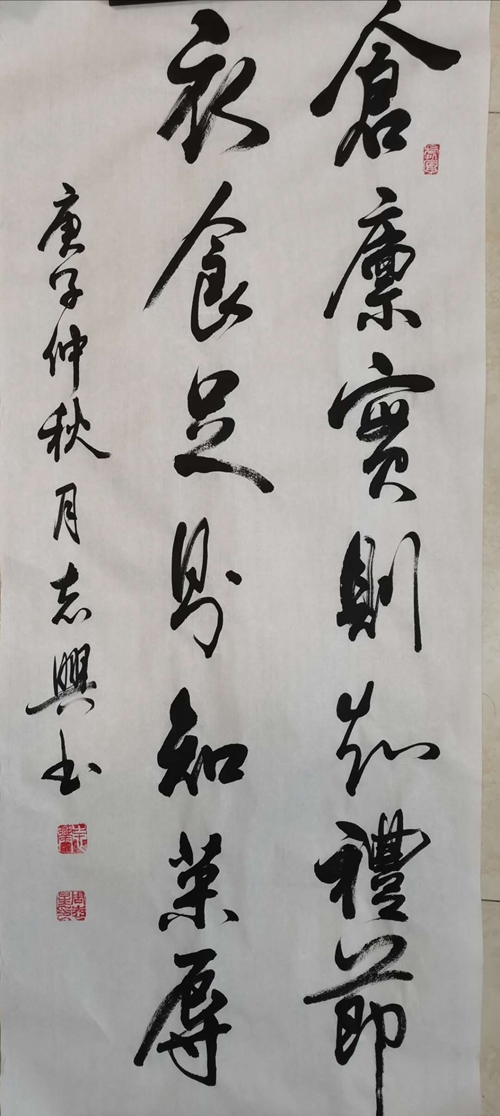 倉廪實則知禮節
衣食足則知荣辱
庚子仲秋月志興书